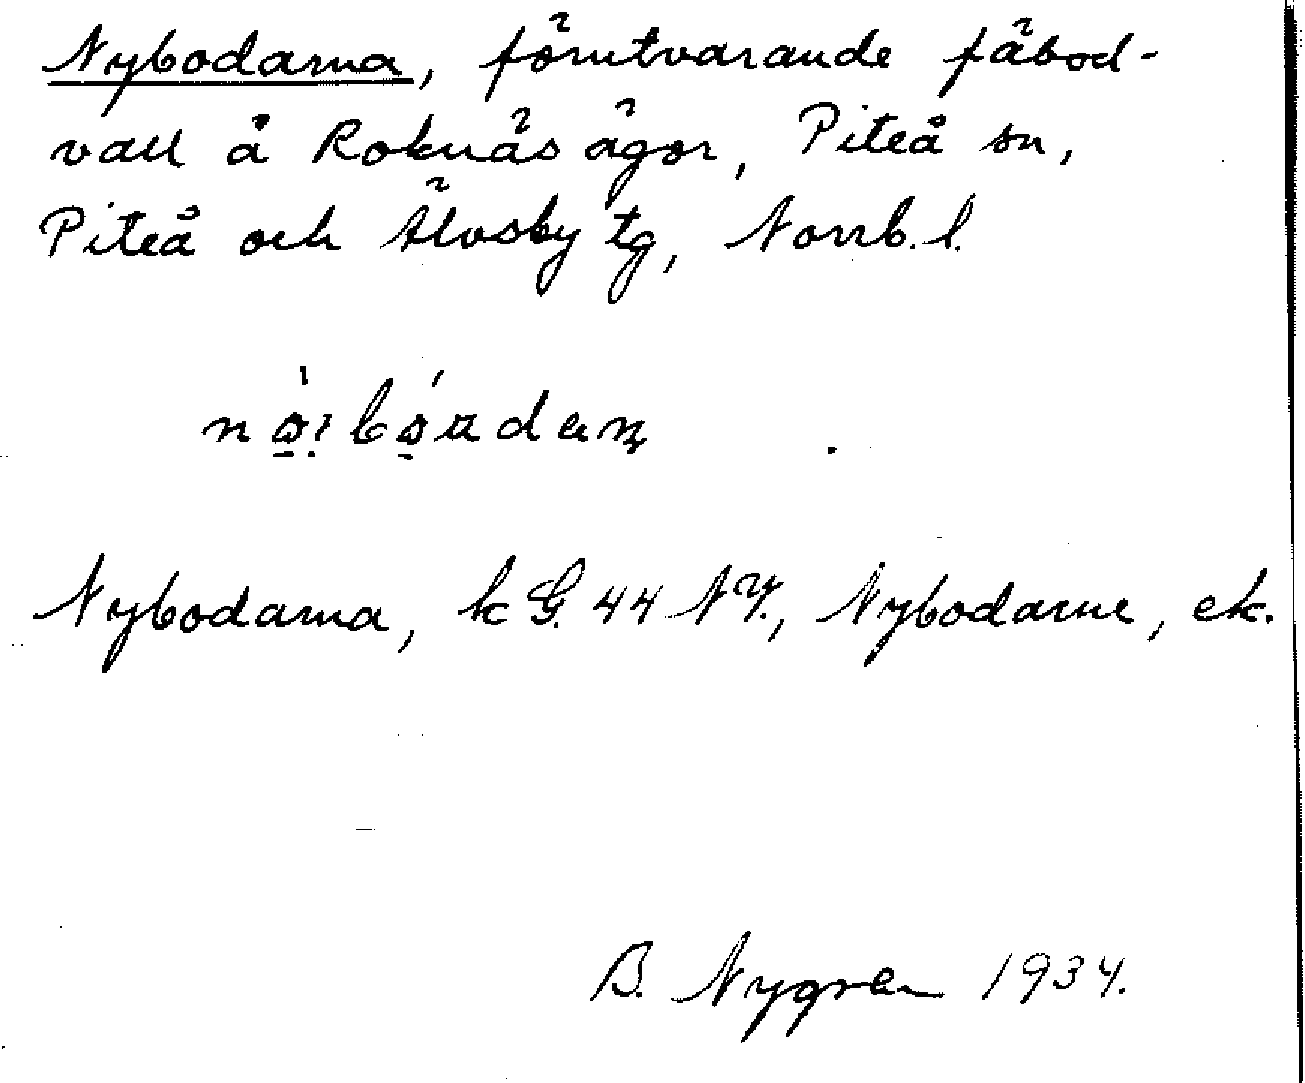 Nybodarna, förutvarande fäbod-
vall å Roknäs ägor, Piteå sn,
Piteå och Älvsby tg, Norrb. l.
Nybodarna, k G. 44 NV., Nybodarne, ek.
B. Nygren 1934.